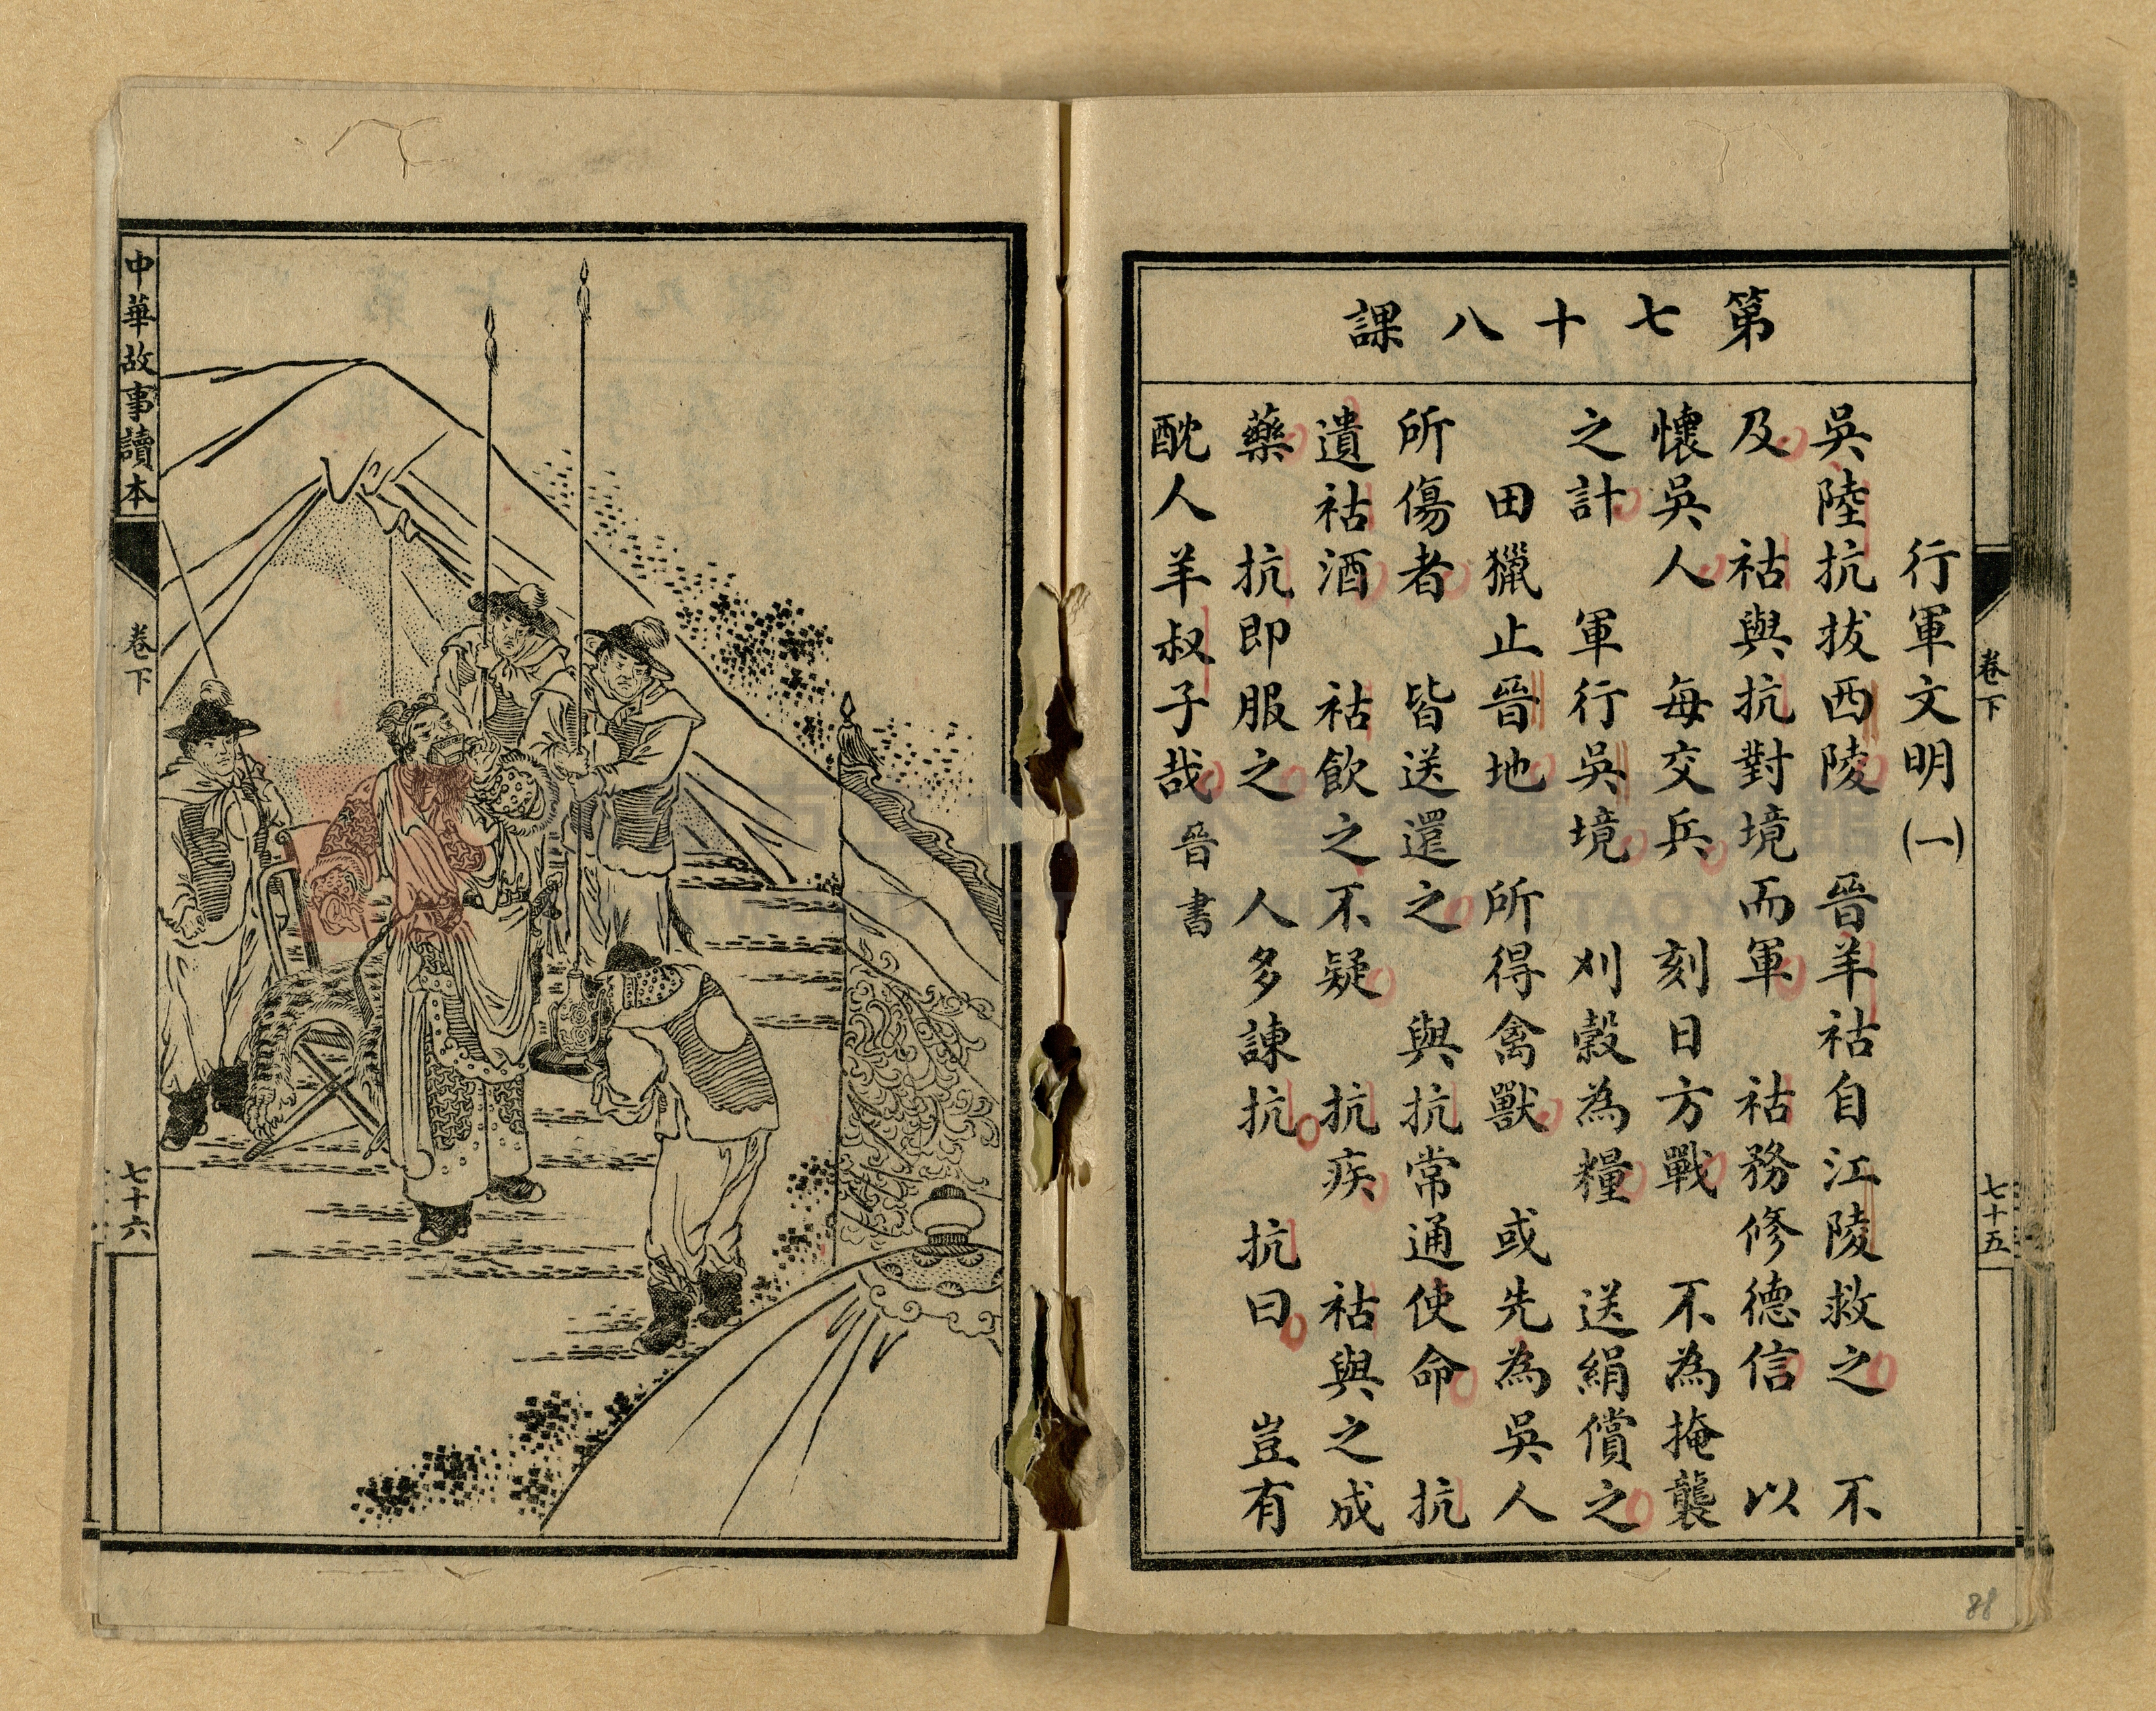 第七十八課
行軍文明(一)
吳陸抗拔西陵 晉羊祜自江陵救之 不
及 祜與抗對境而軍 祜務修德信 以
懷吳人 每交兵 刻日方戰 不為掩襲
之計 軍行吳境 刈穀為糧 送絹償之
田獵止晉地 所得禽獸 或先為吳人
所傷者 皆送還之 與抗常通使命 抗
遺祜酒 祜飲之不疑 抗疾 祜與之成
藥 抗即服之 人多諫抗 抗曰 豈有
酖人羊叔子哉 晉書
卷下
七十五
88
中華故事讀本
卷下
七十六